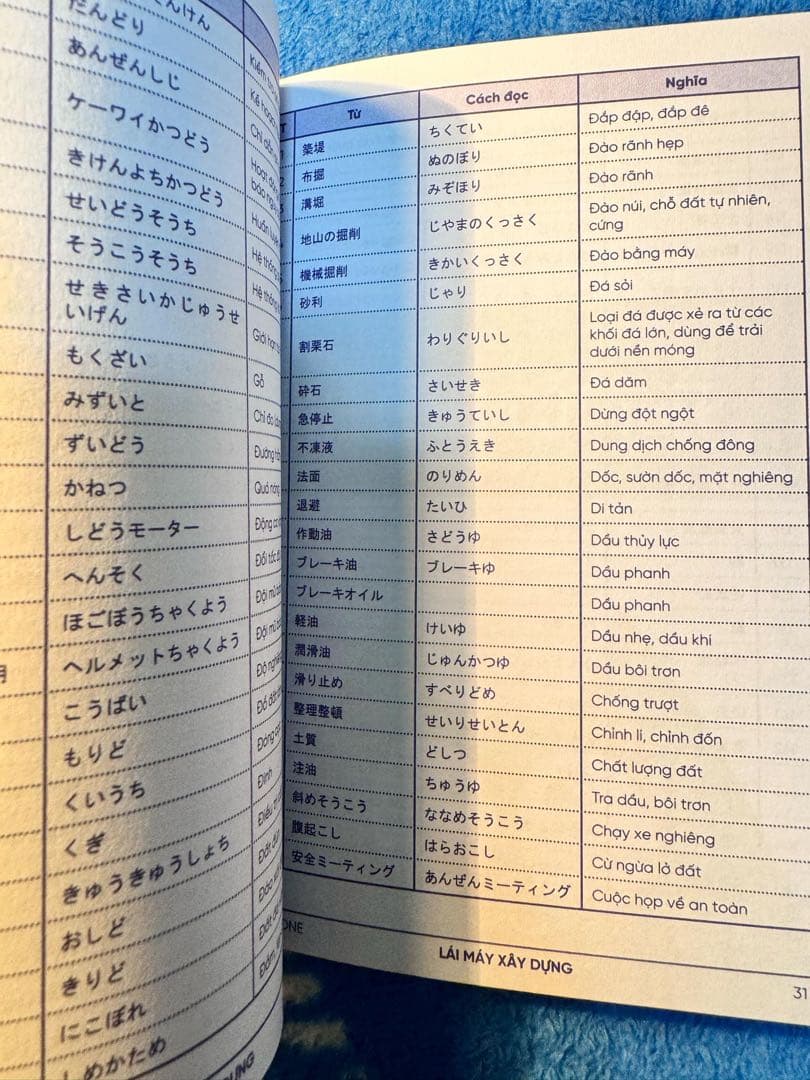 んけん
だんどり
あんぜんしじ
ケーワイかつどう
きけんよちかつどう
せいどうそうち
そうこうそうち
せきさいかじゅうせ
いげん
もくざい
みずいと
ずいどう
かねつ
しどうモーター
へんそく
ほごぼうちゃくよう
ヘルメットちゃくよう
こうばい
もりど
くいうち
くぎ
きゅうきゅうしょち
おしど
きりど
にこぼれ
しめかため
Kiểm
Kế hoạc
Chỉ dẫn
Hoạt độ
báo ngu
Huấn luyện
Hệ thống
Hệ thống
Giới hạn
Gỗ
Chỉ đo
Đường
Quá nóng
Động cơ
Đổi tốc
Đội mũ
Đội mũ
Độ nghiê
Đổ đất
Đóng
Đinh
Từ Cách đọc Nghĩa
築堤 ちくてい Đắp đập, đắp đê
布掘 ぬのぼり Đào rãnh hẹp
溝堀 みぞほり Đào rãnh
地山の掘削 じやまのくっさく Đào núi, chỗ đất tự nhiên,
cứng
機械掘削 きかいくっさく Đào bằng máy
砂利 じゃり Đá sỏi
割栗石 わりぐりいし Loại đá được xẻ ra từ các
khối đá lớn, dùng để trải
dưới nền móng
砕石 さいせき Đá dăm
急停止 きゅうていし Dừng đột ngột
不凍液 ふとうえき Dung dịch chống đông
法面 のりめん Dốc, sườn dốc, mặt nghiêng
退避 たいひ Di tản
作動油 さどうゆ Dầu thủy lực
ブレーキ油 ブレーキゆ Dầu phanh
ブレーキオイル Dầu phanh
軽油 けいゆ Dầu nhẹ, dầu khi
潤滑油 じゅんかつゆ Dầu bôi trơn
滑り止め すべりどめ Chống trượt
整理整頓 せいりせいとん Chỉnh lí, chỉnh đốn
土質 どしつ Chất lượng đất
注油 ちゅうゆ Tra dầu, bôi trơn
斜めそうこう ななめそうこう Chạy xe nghiêng
腹起こし はらおこし Cừ ngừa lở đất
安全ミーティング あんぜんミーティング Cuộc họp về an toàn
ONE
LÁI MÁY XÂY DỰNG
31